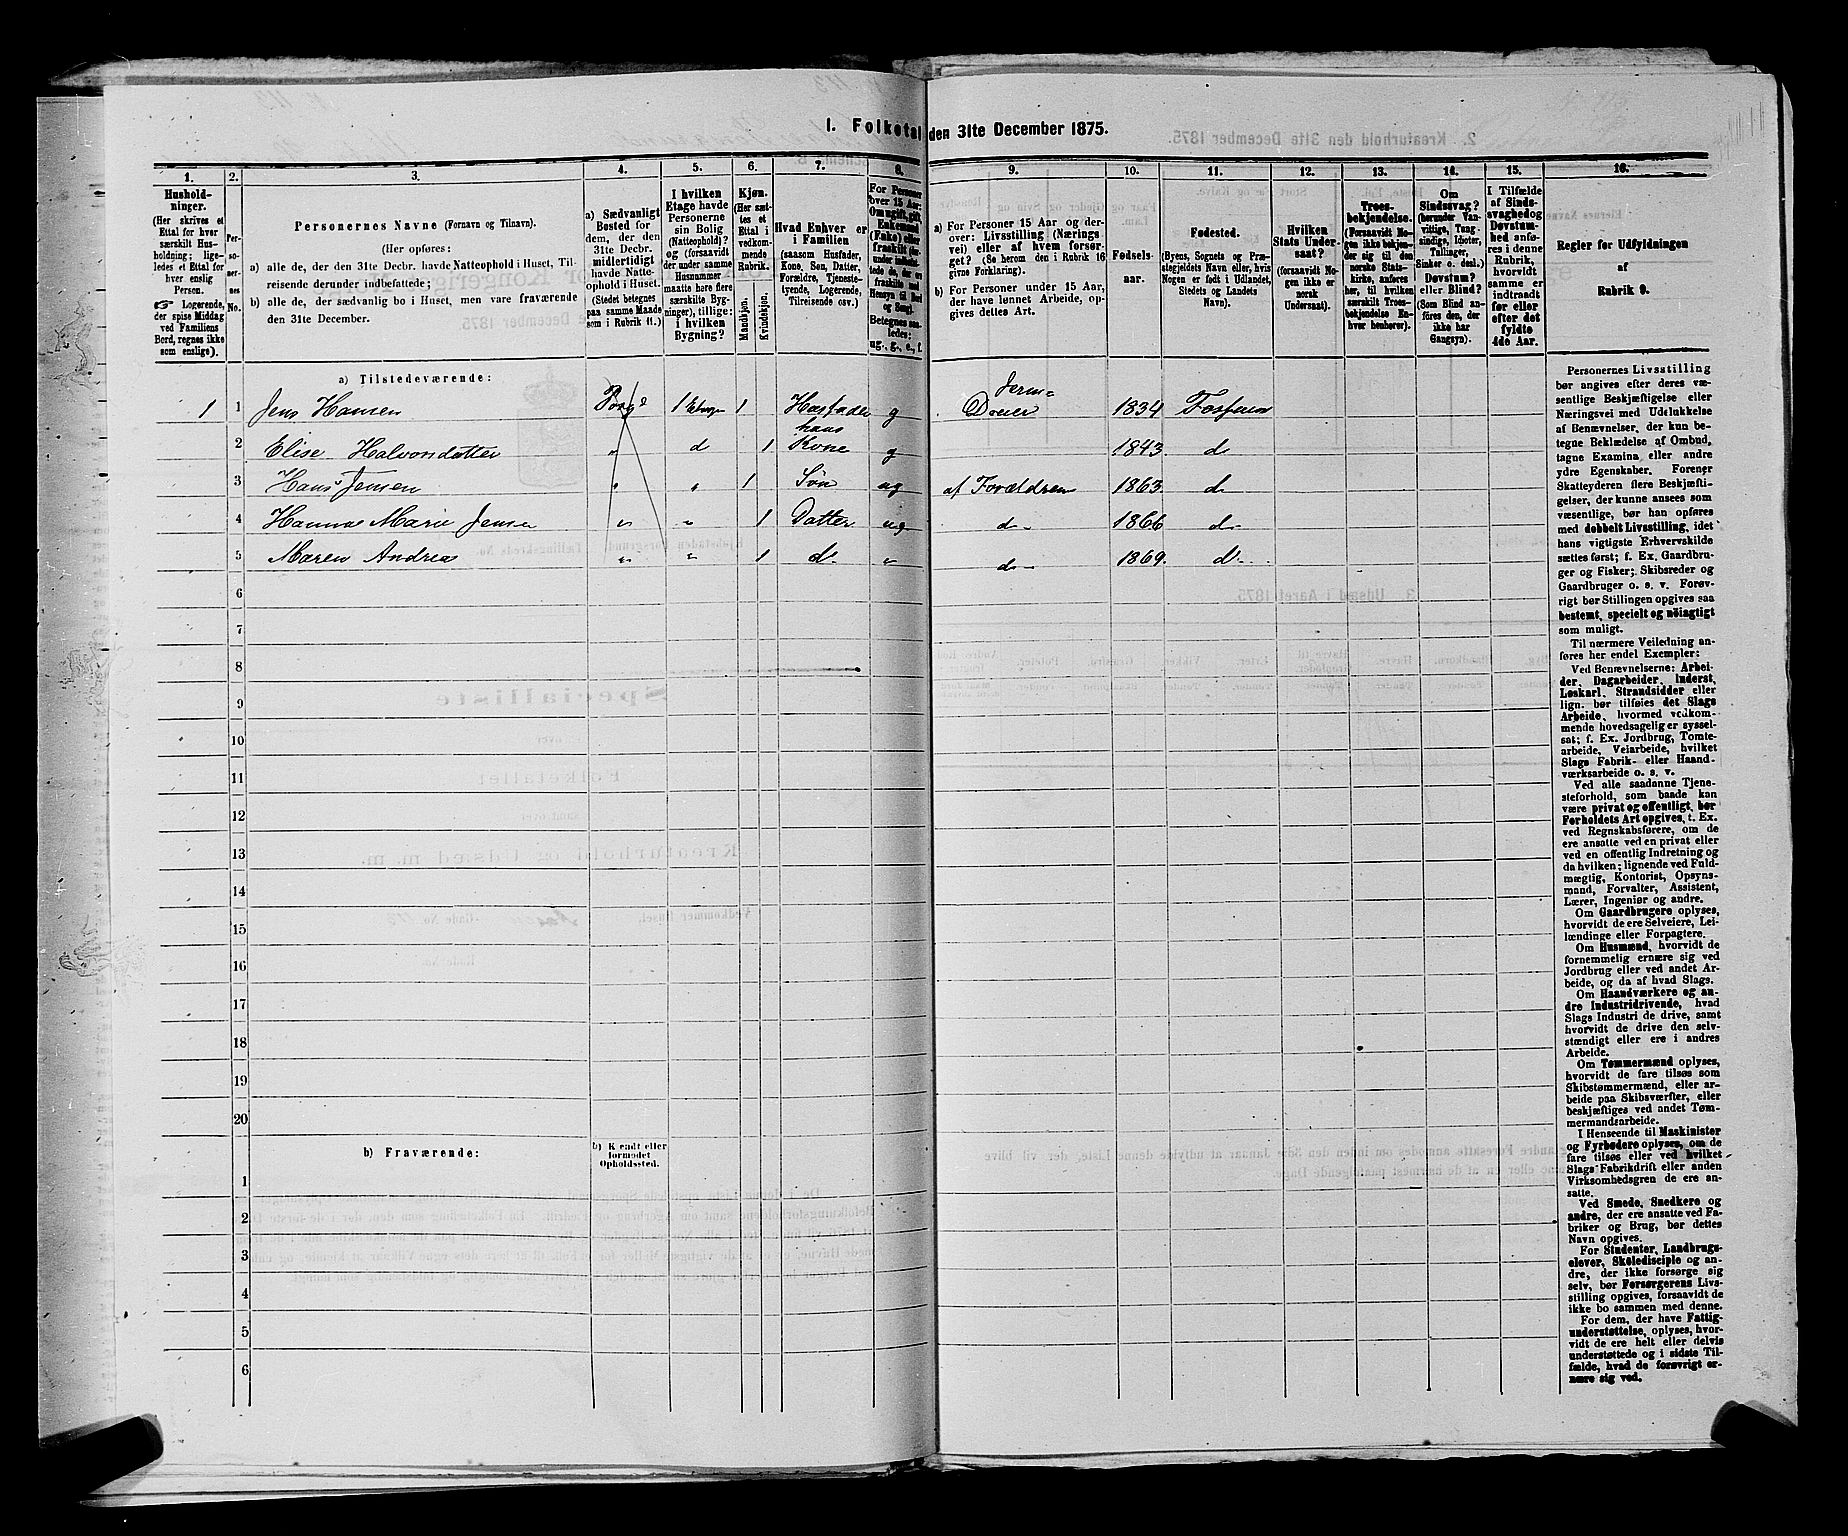 I. Folketal den 31te December 1875.
1. 2. 3. 4. 5. 6. 7. 8. 9. 10. 11. 12. 13. 14. 15. 16.
Hushold-
ninger.
(Her skrives et
Ettal for hver
særskilt Hus-
holdning; lige-
ledes et Ettal for
hver enslig
Person.
☞ Logerende,
der spise Middag
ved Familiens
Bord, regnes ikke
som enslige).
Per-
so-
ner-
nes
No.
Personernes Navne (Fornavn og Tilnavn).
(Her opføres:
a) alle de, der den 31te Decbr. havde Natteophold i Huset, Til-
reisende derunder indbefattede;
b) alle de, der sædvanlig bo i Huset, men vare fraværende
den 31te December.
a) Sædvanligt
Bosted for
dem, der den
31te Decbr.
midlertidigt
havde Natte-
ophold i Huset.
(Stedet betegnes
paa samme Maade
som i Rubrik 11.)
I hvilken
Etage havde
Personerne
sin Bolig
(Natteophold)?
og (forsaavidt
der under samme
Husnummer
maatte høre flere
særskilte Byg-
ninger), tillige:
i hvilken
Bygning?
Kjøn.
(Her sæt-
tes et
Ettal i
vedkom-
mende
Rubrik.
Mandskjøn.
Kvindekjøn.
Hvad Enhver er
i Familien
(saasom Husfader,
Kone, Søn, Datter,
Forældre, Tjeneste-
tyende, Logerende,
Tilreisende osv.)
For Personer
over 15 Aar:
Om ugift, gift,
Enkemand
(Enke) eller
fraskilt
Betegnes saa-
ledes:
ug., g., e., f.
a) For Personer 15 Aar og der-
over: Livsstilling (Nærings-
vei) eller af hvem forsør-
get? (Se herom den i Rubrik 16
givne Forklaring).
b) For Personer under 15 Aar,
der have lønnet Arbeide, op-
gives dettes Art.
Fødsels-
aar.
Fødested.
(Byens, Sognets og Præ-
stegjeldets Navn eller, hvis
Nogen er født i Udlandet,
Stedets og Landets
Navn).
Hvilken
Stats Under-
saat?
(forsaavidt No-
gen ikke er
norsk
Undersaat).
Troes-
bekjendelse.
(Forsaavidt No-
gen ikke bekjen-
der sig til den
norske Stats-
kirke, anføres
her, til hvilken
særskilt Troes-
bekjendelse En-
hver henhører).
Om
Sindssvag?
(herunder Van-
vittige, Tung-
sindige, Idioter,
Tullinger,
Sinker o. desl.)
Døvstum?
eller Blind?
(Som Blind an-
føres den, der
ikke har
Gangsyn).
I Tilfælde
af Sinds-
svaghed og
Døvstum-
hed anfø-
res i denne
Rubrik,
hvorvidt
samme er
indtraadt
før eller
efter det
fyldte
4de Aar.
Regler for Udfyldningen
af
Rubrik 9.
a) Tilstedeværende:
1 1 Jens Hansen 1 Etage 1 Husfader g Dreier 1834
2 Elise Halvorsdatter „ d 1 hans Kone g 1843 d
3 Hans Jensen „ „ 1 Søn ug af Forældren 1863 d
4 Hanna Marie Jensen „ „ 1 Datter ug d 1866 d
5 Maren Andrea „ „ 1 d „ d 1869 d
6
7
8
9
10
11
12
13
14
15
16
17
18
19
20
b) Fraværende:
b) Kjendt eller
formodet
Opholdssted.
1
2
3
4
5
6
Personernes Livsstilling
bør angives efter deres væ-
sentlige Beskjæftigelse eller
Næringsvei med Udelukkelse
af Benævnelser, der kun be-
tegne Beklædelse af Ombud,
tagne Examina eller andre
ydre Egenskaber. Forener
Skatteyderen flere Beskjæfti-
gelser, der kunne ansees som
væsentlige, bør han opføres
med dobbelt Livsstilling, idet
hans vigtigste Erhvervskilde
sættes først; f. Ex. Gaardbru-
ger og Fisker; Skibsreder og
Gaardbruger o. s. v. Forøv-
rigt bør Stillingen opgives saa
bestemt, specielt og nøiagtigt
som muligt.
Til nærmere Veiledning an-
føres her endel Exempler:
Ved Benævnelserne: Arbei-
der, Dagarbeider, Inderst,
Løskarl, Strandsidder eller
lign. bør tilføies det Slags
Arbeide, hvormed vedkom-
mende hovedsagelig er syssel-
sat; f. Ex. Jordbrug, Tomte-
arbeide, Veiarbeide, hvilket
Slags Fabrik- eller Haand-
værksarbeide o. s. v.
Ved alle saadanne Tjene-
steforhold, som baade kan
være privat og offentligt, bør
Forholdets Art opgives, f. Ex.
ved Regnskabsførere, om de
ere ansatte ved en privat eller
ved en offentlig Indretning og
da hvilken; lignende ved Fuld-
mægtig, Kontorist, Opsyns-
mand, Forvalter, Assistent,
Lærer, Ingeniør og andre.
Om Gaardbrugere oplyses,
hvorvidt de ere Selveiere, Lei-
lændinge eller Forpagtere.
Om Husmænd, hvorvidt de
fornemmelig ernære sig ved
Jordbrug eller ved andet Ar-
beide, og da af hvad Slags.
Om Haandværkere og an-
dre Industridrivende, hvad
Slags Industri de drive, samt
hvorvidt de drive den selv-
stændigt eller ere i andres
Arbeide.
Om Tømmermænd oplyses,
hvorvidt de fare tilsøs som
Skibstømmermænd, eller ar-
beide paa Skibsværfter, eller
beskjæftiges ved andet Tøm-
mermandsarbeide.
I Henseende til Maskinister
og Fyrbødere oplyses, om de
fare tilsøs eller ved hvilket
Slags Fabrikdrift eller anden
Virksomhedsgren de ere an-
satte.
Ved Smede, Snedkere og
andre, der ere ansatte ved Fa-
briker og Brug, bør dettes
Navn opgives.
For Studenter, Landbrugs-
elever, Skoledisciple og an-
dre, der ikke forsørge sig
selv, bør Forsørgerens Livs-
stilling opgives, forsaavidt de
ikke bo sammen med denne.
For dem, der have Fattig-
understøttelse, oplyses, hvor-
vidt de ere helt eller delvis
understøttede og i sidste Til-
fælde, hvad de forøvrigt er-
nære sig ved.